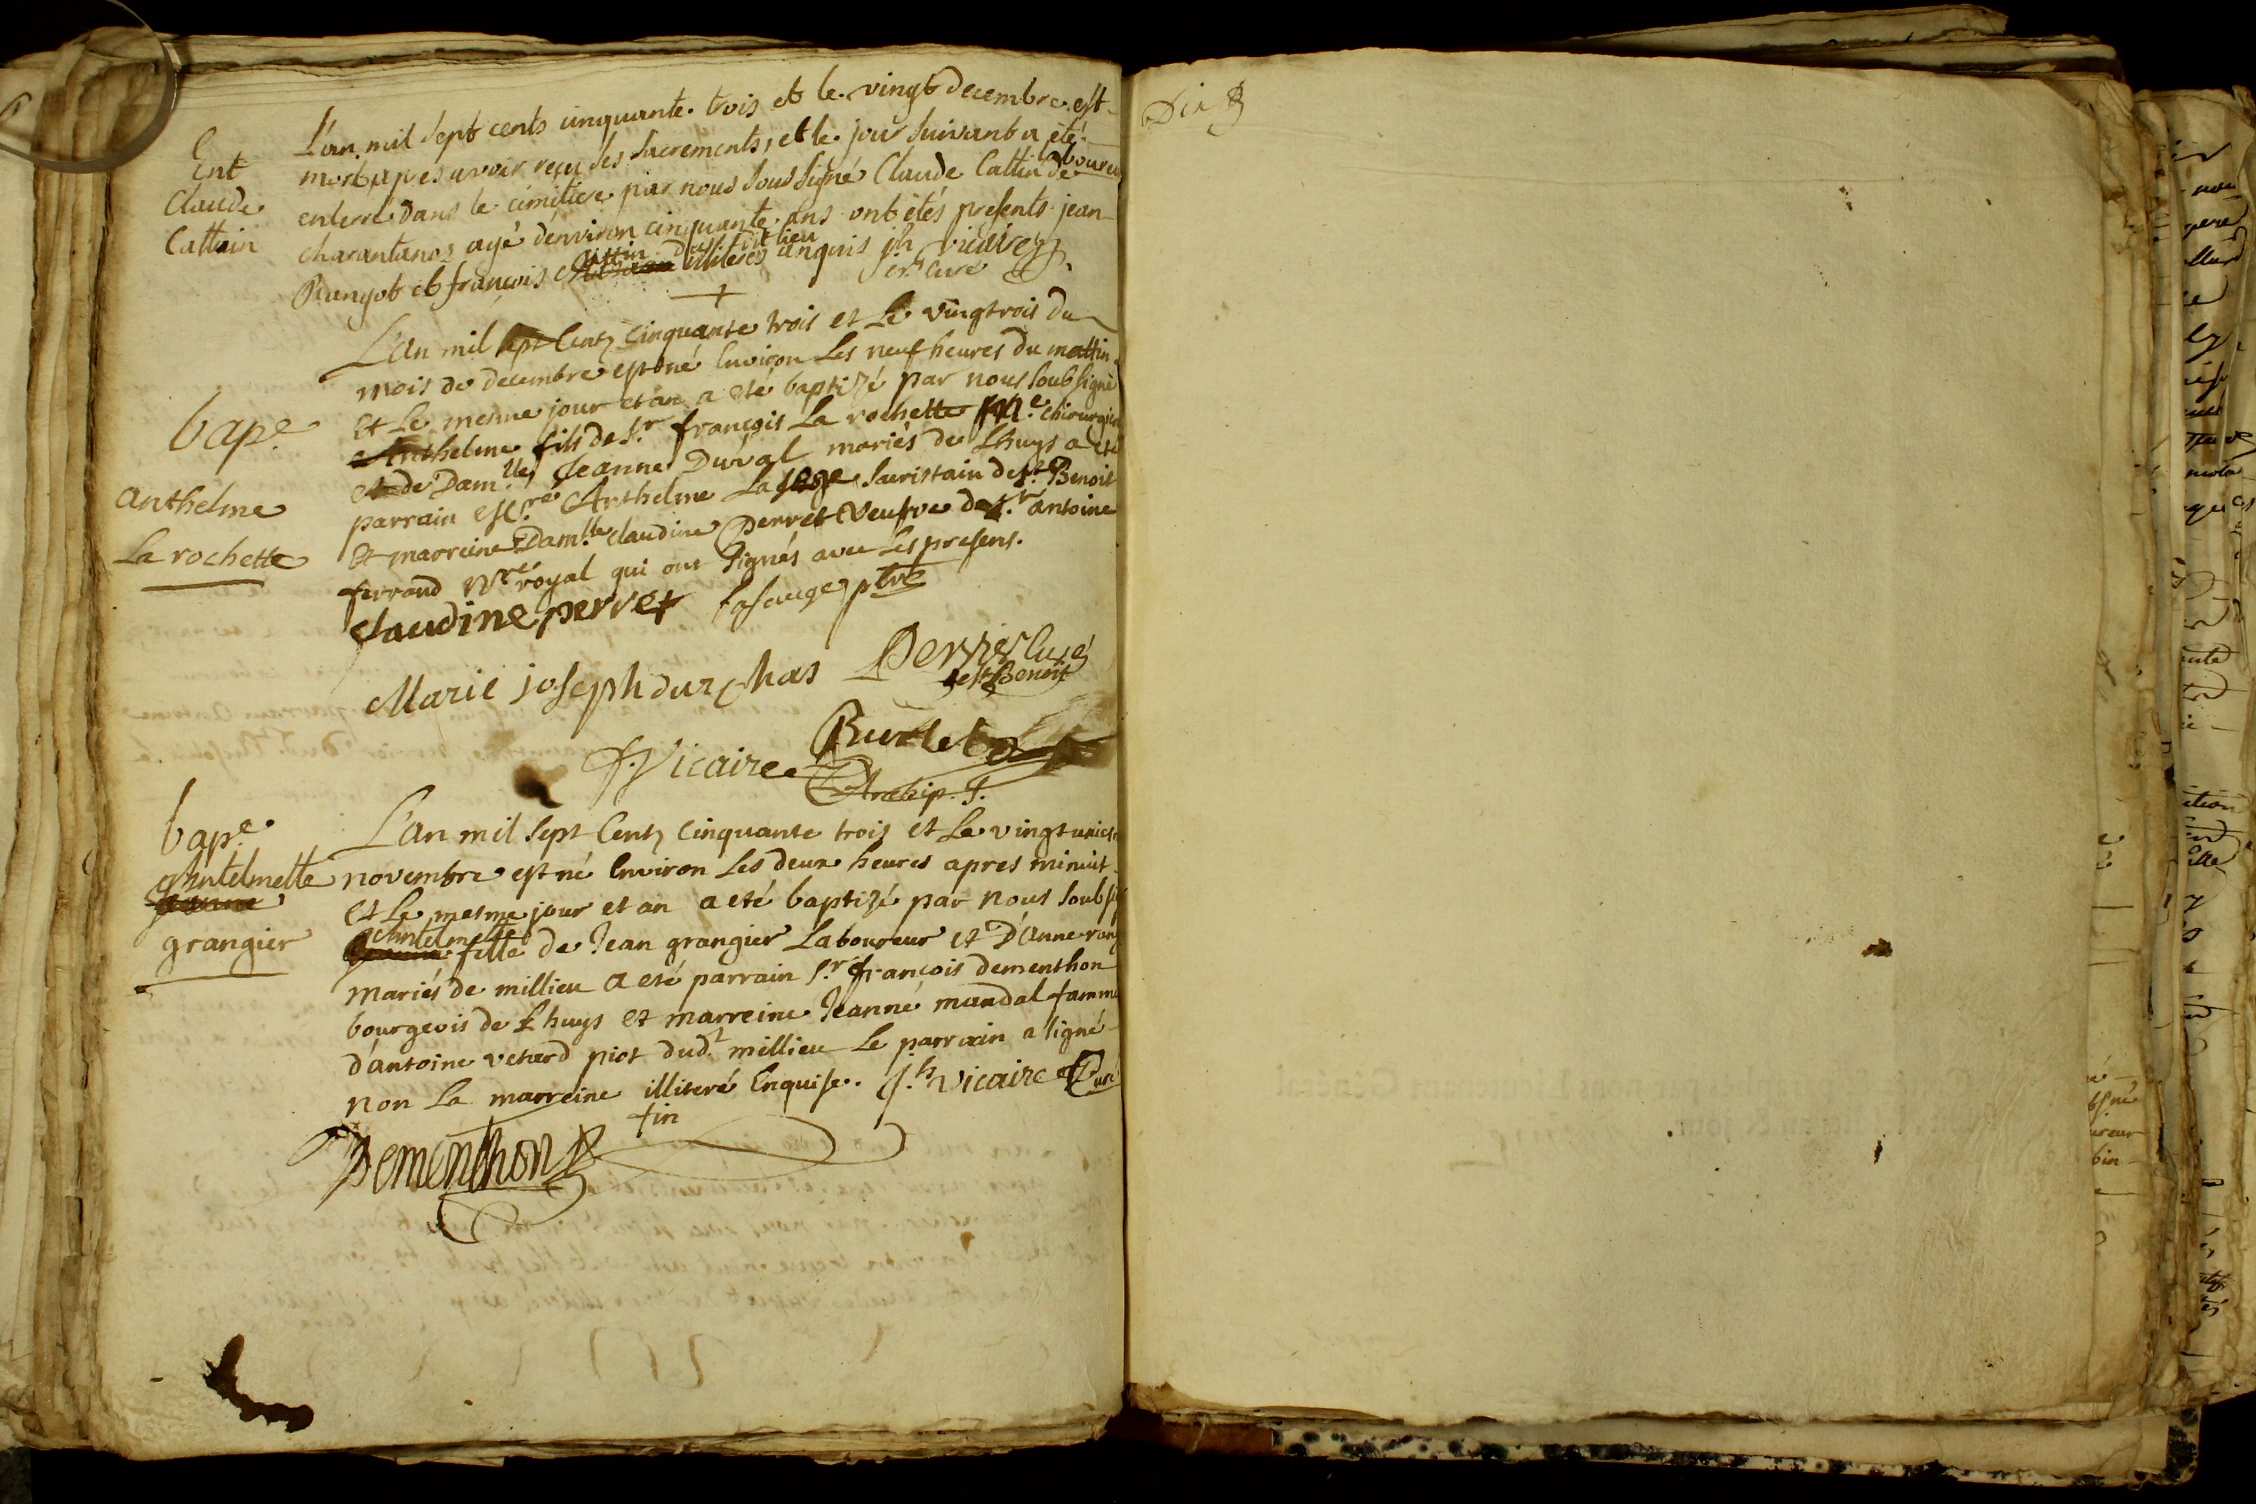 Ent
Claude
Cattin
L'an mil sept cents cinquante trois et le vingt decembre est
mort apres avoir reçu les sacrements, et le jour suivant a été
enterré dans le cimitiere par nous soussigné Claude Cattin
de
charantanos agé d'environ cinquante ans ont étés presents jean
Rangot et françois Cattin dud. lieu illiteres anquis jh vicaire
et curé
bap.e
anthelme
La rochette
L'an mil sept Centz Cinquante trois et Le vingtrois du
mois de decembre est né Environ Les neuf heures du mattin
et Le mesme jour et an a eté baptizé par nous soubsigné
Anthelme fils de S.r françois La rochette M.e chirurgien
et de Dam.lle Jeanne Duval mariés de Lhuys a eté
parrain Anthelme La sauge sacristain de St. Benoit
Et marreine Dam.lle claudine perret veufve de S.r antoine
ferrand N.re royal qui ont signés avec Les presens.
claudine perret Lasauge ptre
Marie joseph
curé
de St Benoit
Vicaire
Archip.
bap.e
Antelmette
jeanne
grangier
L'an mil sept Centz Cinquante trois et Le vingt
novembre est né Environ Les deux heures apres minuit
et Le mesme jour et an a eté baptizé par nous soubsig
antelmette
jeanne fille de Jean grangier Laboureur et D'Anne rang
mariés de millieu a eté parrain S.r françois dementhon
bourgeois de Lhuys et marreine Jeanne mandal famme
d'antoine vetard piot dud.t millieu Le parrain a signé
non La marreine illiteré Enquise. J.h vicaire Curé
fin
Dementhon